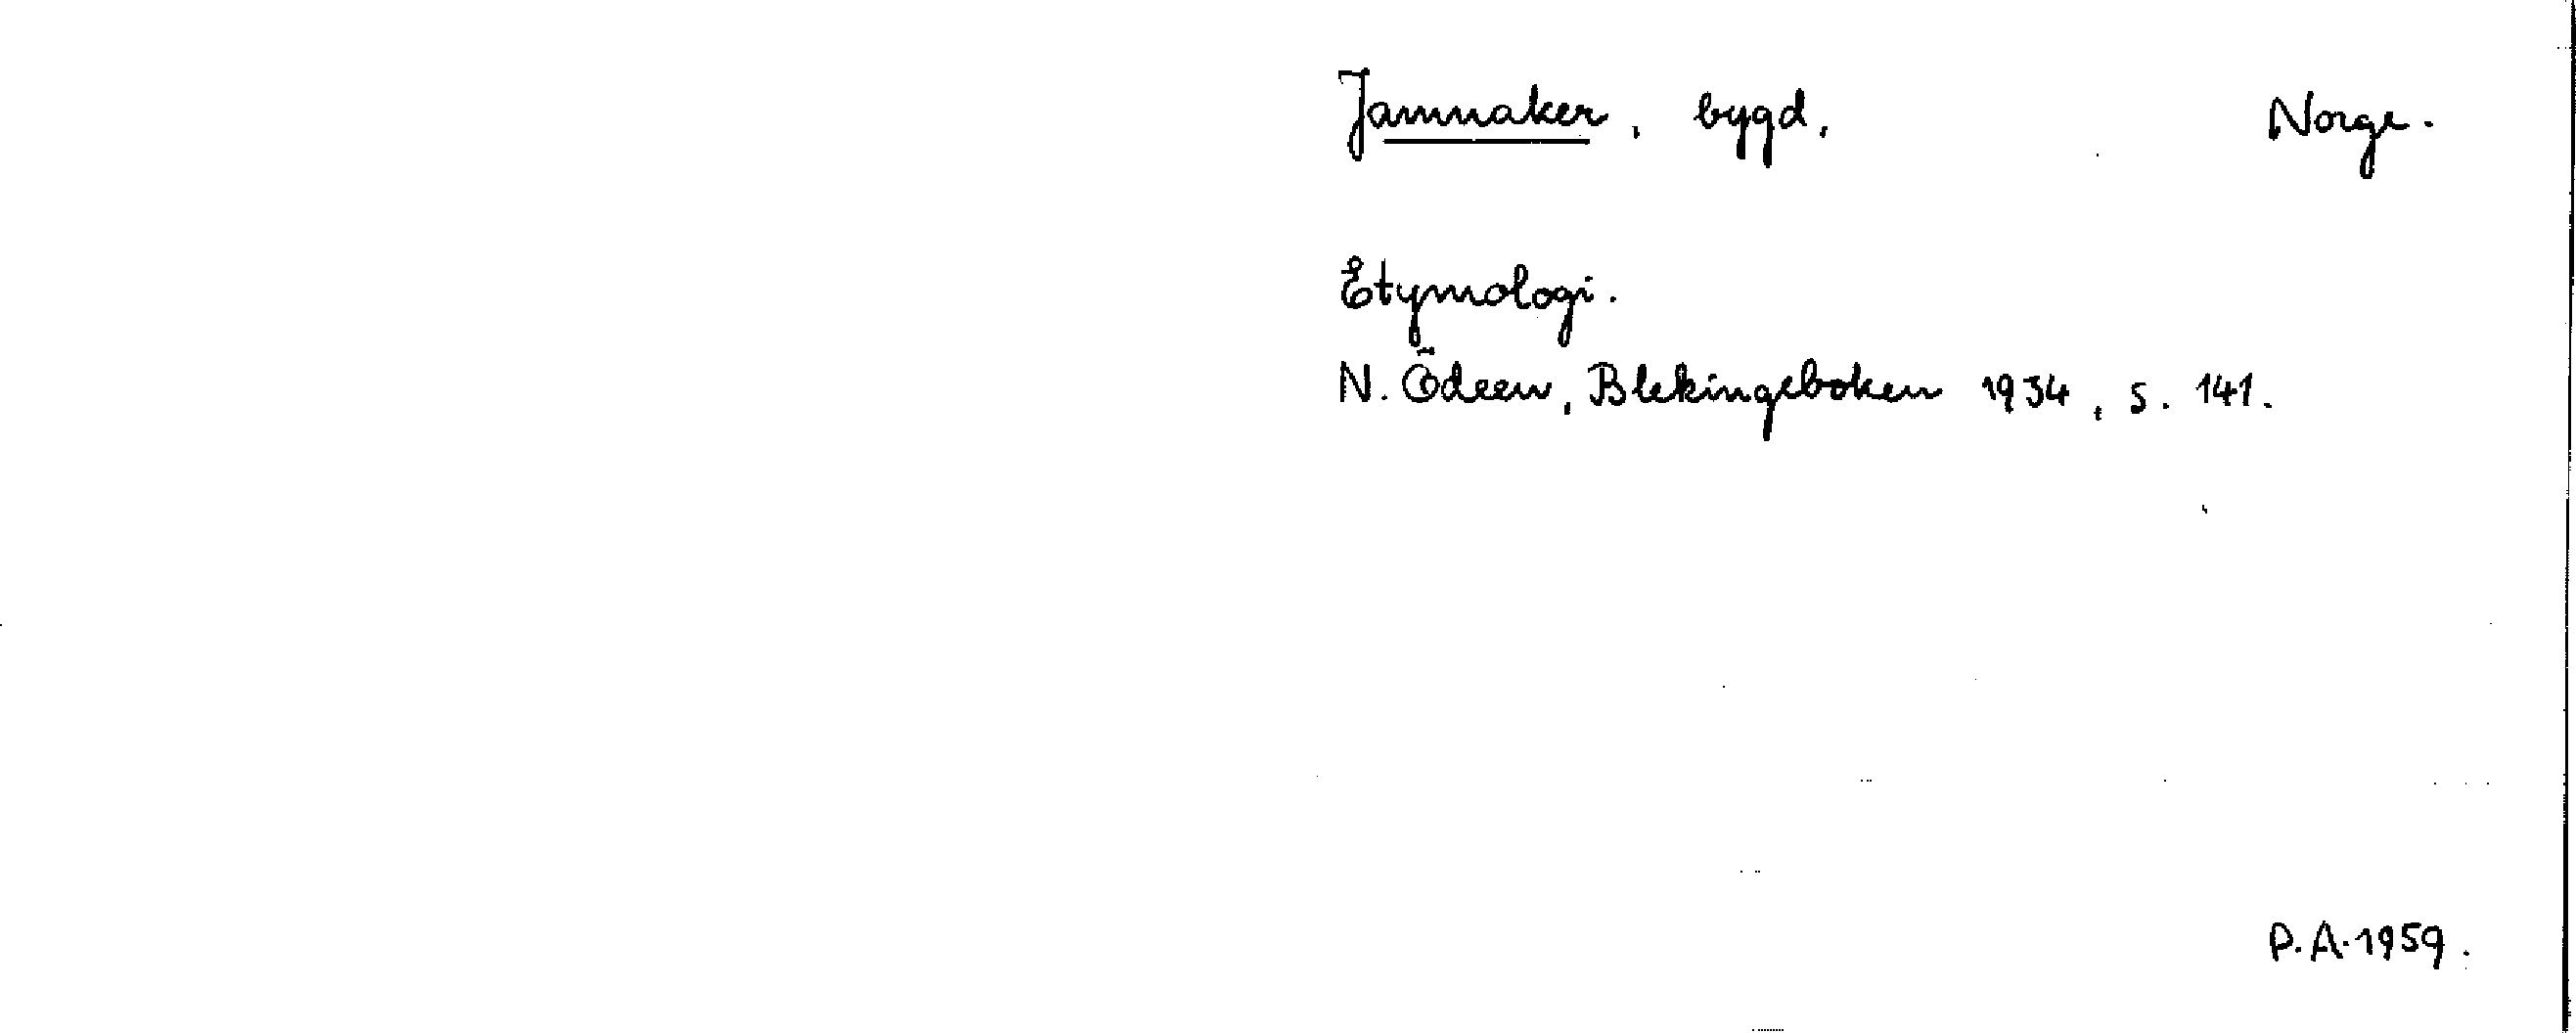 Jamnaker, bygd. Norge.
Etymologi.
N. Ödeen, Blekingeboken 1934, s. 141.
P.A. 1959.